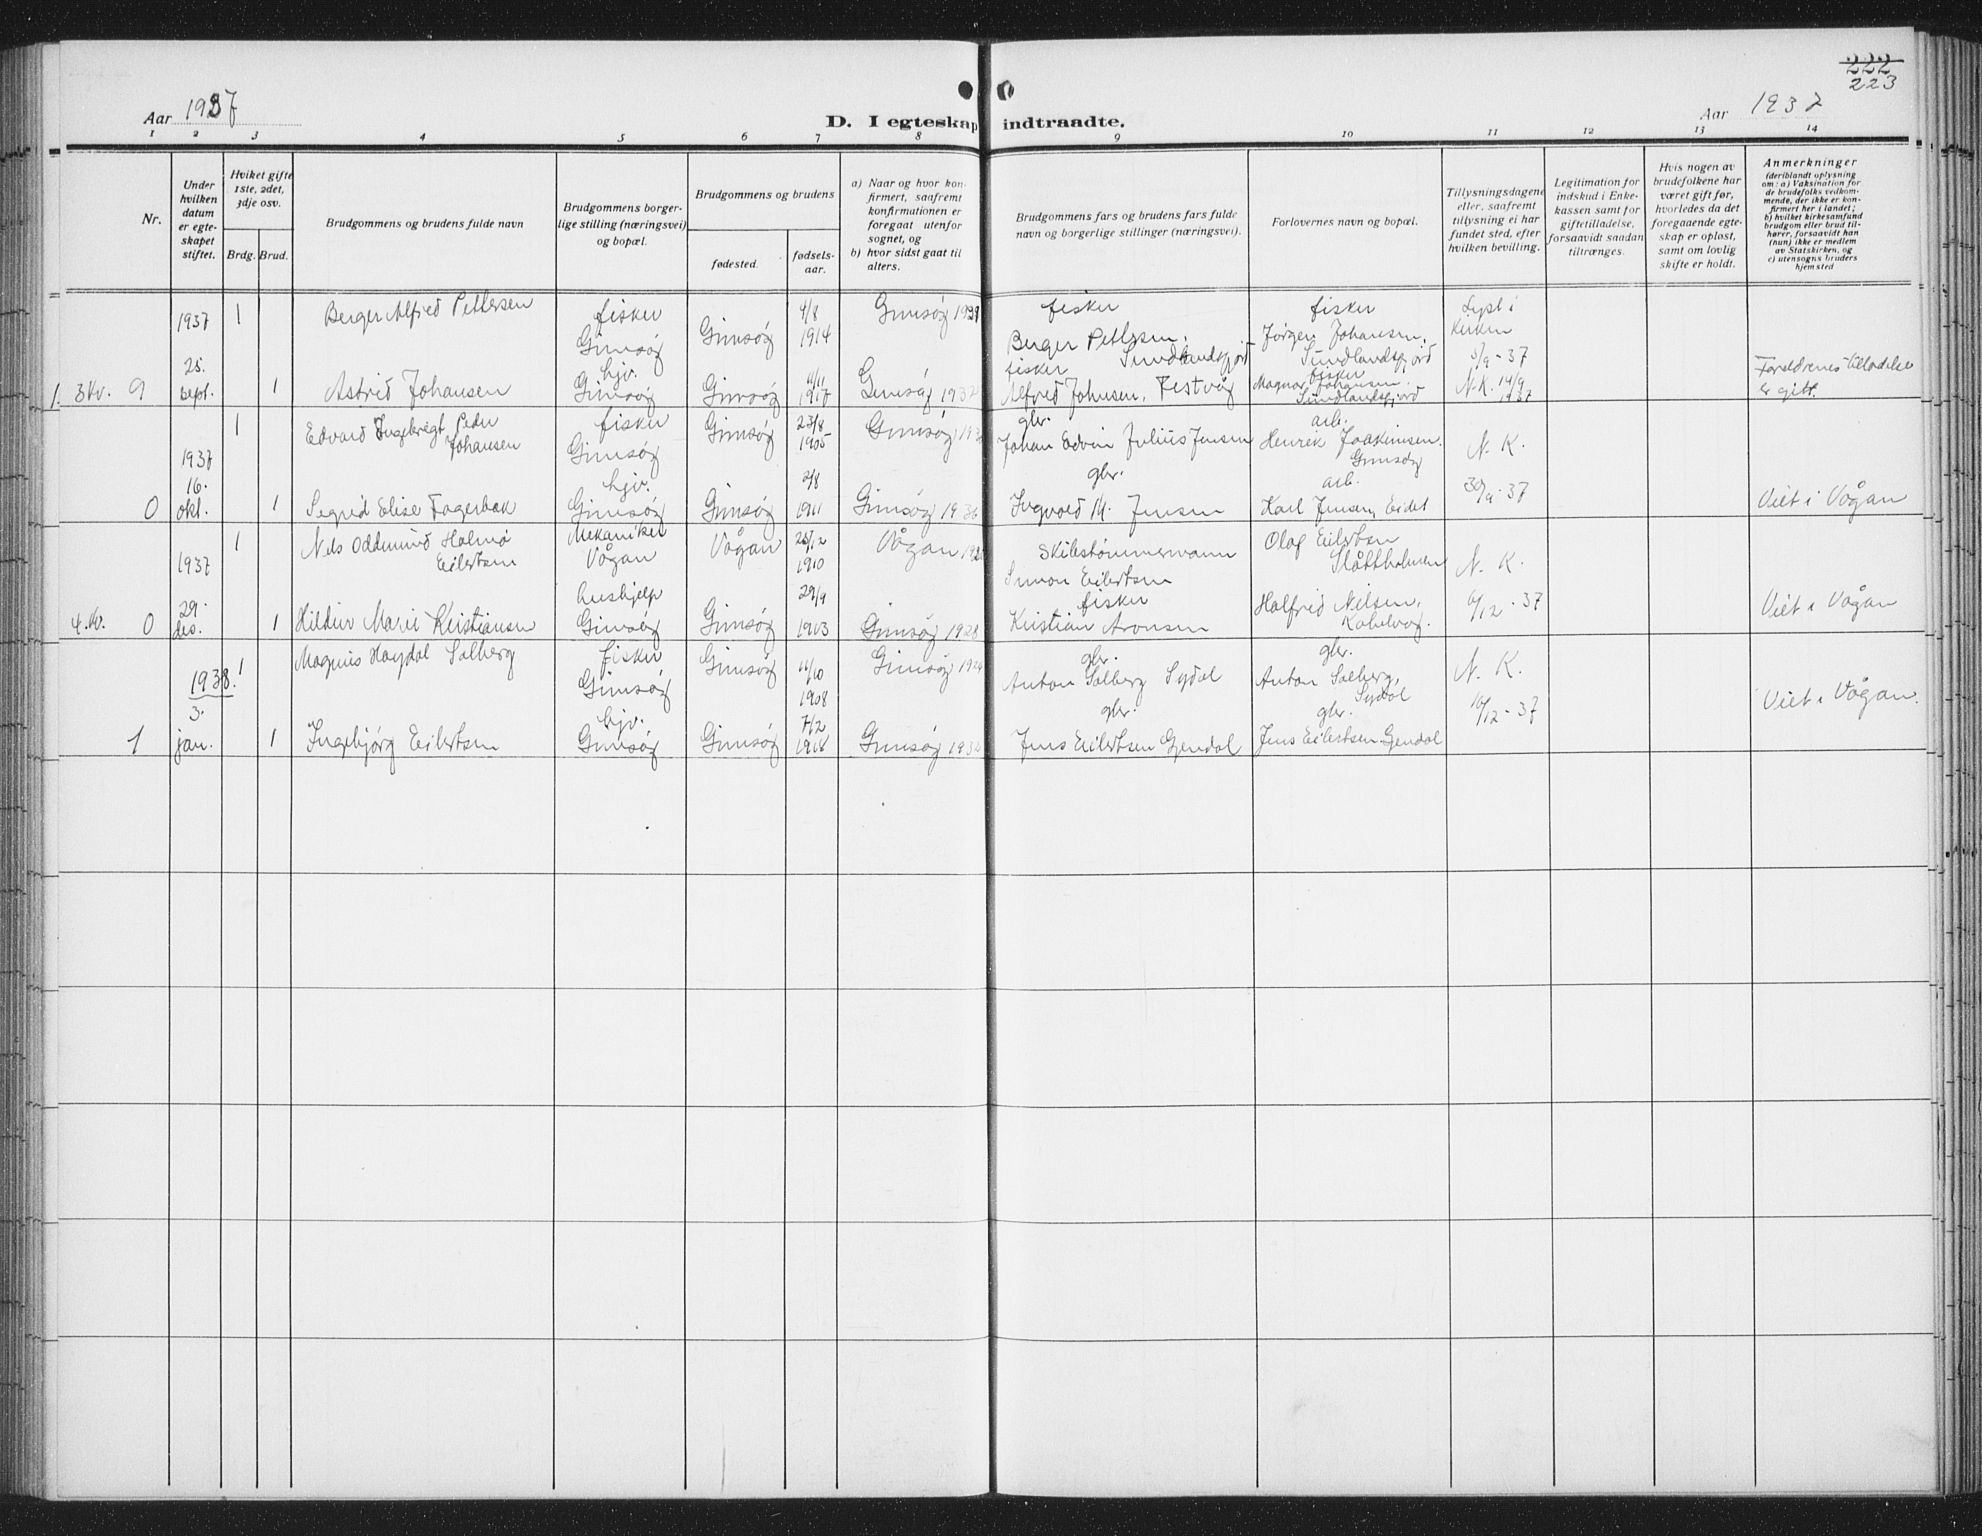 222
223
Aar 1937
D. I egteskap indtraadte.
Aar 1937
1 2 3 4 5 6 7 8 9 10 11 12 13 14
Nr.
Under hvilken datum er egteskapet stiftet.
Hvilket gifte 1ste, 2det, 3dje osv.
Brdg. Brud.
Brudgommens og brudens fulde navn
Brudgommens borgerlige stilling (næringsvei) og bopæl.
Brudgommens og brudens
fødested.
fødselsaar.
a) Naar og hvor konfirmert, saafremt konfirmationen er foregaat utenfor sognet, og
b) hvor sidst gaat til alters.
Brudgommens fars og brudens fars fulde navn og borgerlige stillinger (næringsvei).
Forlovernes navn og bopæl.
Tillysningsdagene eller, saafremt tillysning ei har fundet sted, efter hvilken bevilling.
Legitimation for indskud i Enkekassen samt for giftetilladelse, forsaavidt saadan tiltrænges.
Hvis nogen av brudefolkene har været gift før, hvorledes da det foregaaende egteskap er opløst, samt om lovlig skifte er holdt.
Anmerkninger
(deriblandt oplysning om: a) Vaksination for de brudefolks vedkommende, der ikke er konfirmert her i landet; b) hvilket kirkesamfund brudgom eller brud tilhører, forsaavidt han (hun) ikke er medlem av Statskirken, og c) utensogns bruders hjemsted
1. 3 Kv. 9
1937 25. sept.
1
Berger Alfred Pettersen
fisker Gimsøy
Gimsøy
4/8 1914
Gimsøy
fisker
Berger Pettersen, Sundlandsfjord
fisker
Jørgen Johansen, Sundlandsfjord
Lyst i kirken
5/9-37
1
Astrid Johansen
hjv. Gimsøy
Gimsøy
11/11 1917
Gimsøy 1932
fisker
Alfred Johnsen, Festvåg
fisker
Magnor Johansen, Sundlandsfjord
N.K. 14/9 1937
Foreldrenes tilladelse er gitt.
0
1937 16. okt.
1
Edvard Ingebrigt Peder Johansen
fisker Gimsøy
Gimsøy
23/8 1905
Gimsøy
gbr.
Johan Edvin Julius Jensen
arb.
Henrik Joakimsen Gimsøy
N. K.
1
Sigrid Elise Fagerbak
hjv. Gimsøy
Gimsøy
2/8 1911
Gimsøy 1936
gbr.
Ingvald M. Jensen
arb.
Karl Jensen, Eidet
30/9-37
Viet i Vågan
4. Kv. 0
1937 29. des.
1
Nels Oddmund Holmø Eilertsen
Mekaniker Vågan
Vågan
23/12 1910
Vågan
Skibstømmermann
Simon Eilertsen
Olaf Eilertsen Slåttholmen
N. K.
1
Hildur Marie Kristiansen
hushjelp Gimsøy
Gimsøy
29/9 1913
Gimsøy 1928
fisker
Kristian Aronsen
Halfrid Nilsen, Kabelvåg.
6/12-37
Viet i Vågan
1
1938. 3. jan.
1
Magnus Høydal Solberg
fisker Gimsøy
Gimsøy
11/10 1908
Gimsøy 1924
gbr.
Anton Solberg Sydal
gbr.
Anton Solberg, Sydal
N. K.
1
Ingebjørg Eilertsen
hjv. Gimsøy
Gimsøy
7/2 1918
Gimsøy
gbr.
Jens Eilertsen Gjendal
gbr.
Jens Eilertsen Gjendal
16/12-37
Viet i Vågan.